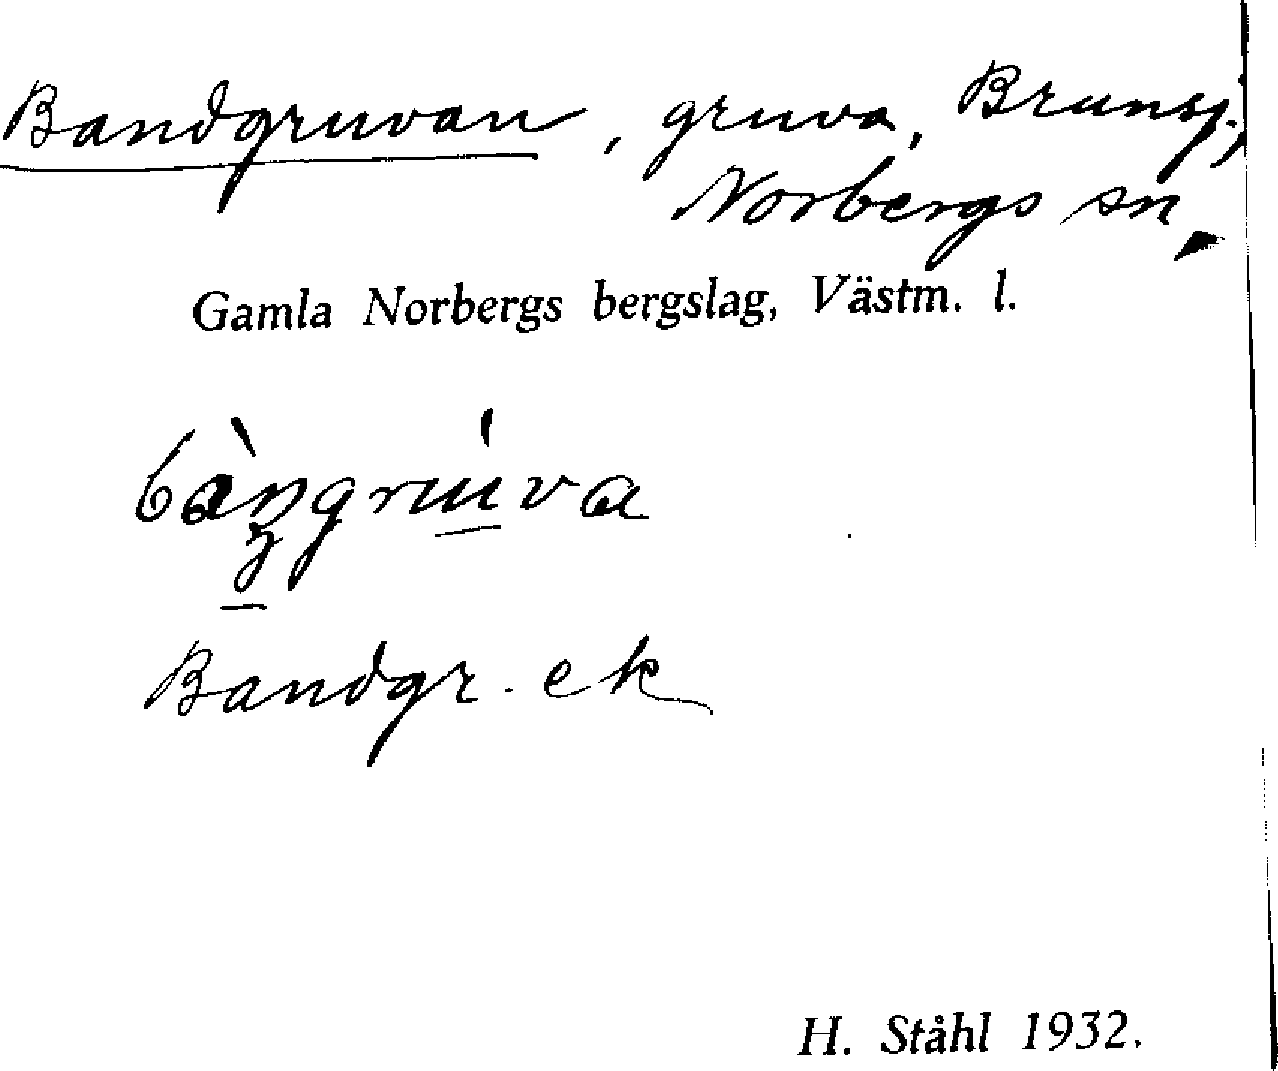 Bandgruvan, gruva, Brunsj,
Norbergs sn
Gamla Norbergs bergslag, Västm. l.
bàngrúva
Bandgr. ek
H. Ståhl 1932.